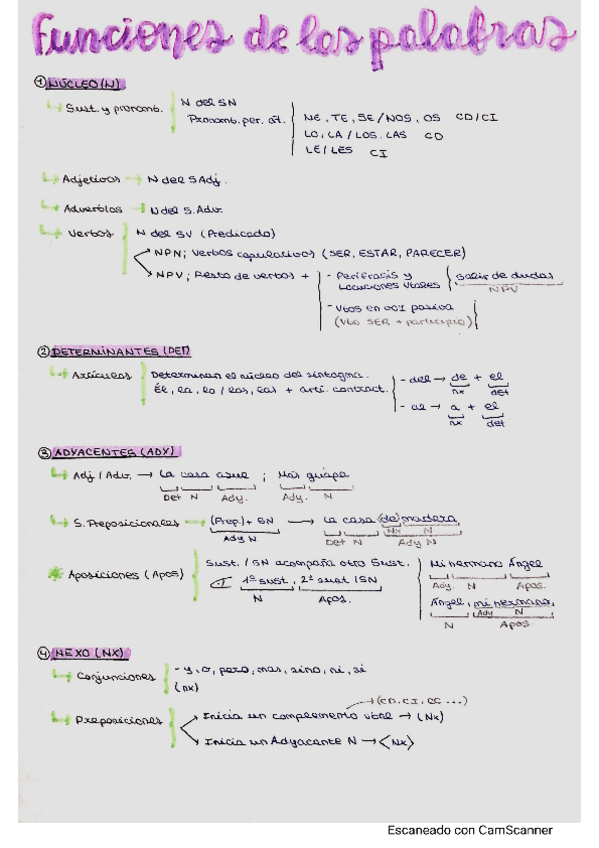 Funciones de las palabras
① NÚCLEO (N)
Sust. y pronomb.
N del SN
Pronomb. per. át.
ME, TE, SE / NOS, OS CD/CI
LO, LA / LOS, LAS CD
LE / LES CI
Adjetivos → N del S Adj.
Adverbios → N del S. Adv.
Verbos
N del SV (Predicado)
NPN; Verbos copulativos (SER, ESTAR, PARECER)
NPV; Resto de verbos +
- Perífrasis y locuciones vbales
salir de dudas
NPV
- Vbos en voz pasiva
(Vbo SER + participio)
② DETERMINANTES (DET)
Artículos
Determinan el núcleo del sintagma.
Él, la, lo / los, las + artí. contract.
- del → de + el
nx det
- al → a + el
nx det
③ ADYACENTES (ADY)
Adj / Adv. → La casa azul ; Más guapa
Det N Ady. Ady. N
S. Preposicionales → (Prep.) + SN → La casa (de) madera
Ady N Det N Nx N Ady N
Aposiciones (Apos)
Sust. / SN acompaña otro Sust.
1º sust, 2º sust / SN
N Apos.
Mi hermano Ángel
Ady. N Apos.
Ángel, mi hermano,
Ady N
N Apos.
④ NEXO (NX)
Conjunciones
- y, o, pero, mas, sino, ni, si
(nx)
Preposiciones
Inicia un complemento vbal → (Nx)
(CD, CI, CC ...)
Inicia un Adyacente N → <Nx>
Escaneado con CamScanner